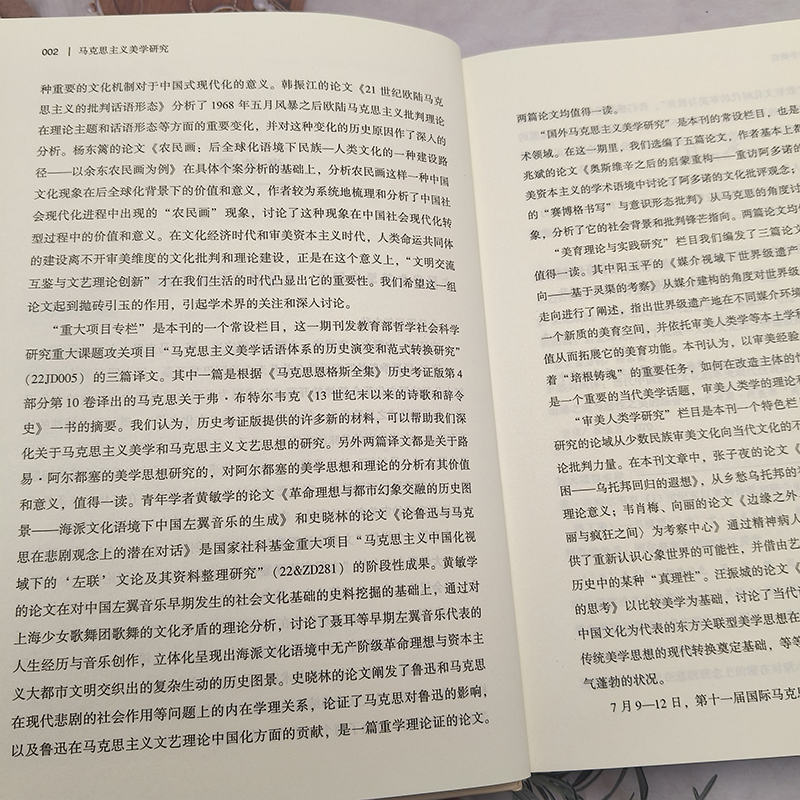 002 | 马克思主义美学研究
种重要的文化机制对于中国式现代化的意义。韩振江的论文《21 世纪欧陆马克
思主义的批判话语形态》分析了 1968 年五月风暴之后欧陆马克思主义批判理论
在理论主题和话语形态等方面的重要变化，并对这种变化的历史原因作了深入的
分析。杨东篱的论文《农民画：后全球化语境下民族—人类文化的一种建设路
径——以余东农民画为例》在具体个案分析的基础上，分析农民画这样一种中国
文化现象在后全球化背景下的价值和意义，作者较为系统地梳理和分析了中国社
会现代化进程中出现的“农民画”现象，讨论了这种现象在中国社会现代化转
型过程中的价值和意义。在文化经济时代和审美资本主义时代，人类命运共同体
的建设离不开审美维度的文化批判和理论建设，正是在这个意义上，“文明交流
互鉴与文艺理论创新”才在我们生活的时代凸显出它的重要性。我们希望这一组
论文起到抛砖引玉的作用，引起学术界的关注和深入讨论。
“重大项目专栏”是本刊的一个常设栏目，这一期刊发教育部哲学社会科学
研究重大课题攻关项目“马克思主义美学话语体系的历史演变和范式转换研究”
（22JD005）的三篇译文。其中一篇是根据《马克思恩格斯全集》历史考证版第 4
部分第 10 卷译出的马克思关于弗·布特尔韦克《13 世纪末以来的诗歌和辞令
史》一书的摘要。我们认为，历史考证版提供的许多新的材料，可以帮助我们深
化关于马克思主义美学和马克思主义文艺思想的研究。另外两篇译文都是关于路
易·阿尔都塞的美学思想研究的，对阿尔都塞的美学思想和理论的分析有其价值
和意义，值得一读。青年学者黄敏学的论文《革命理想与都市幻象交融的历史图
景——海派文化语境下中国左翼音乐的生成》和史晓林的论文《论鲁迅与马克
思在悲剧观念上的潜在对话》是国家社科基金重大项目“马克思主义中国化视
域下的‘左联’文论及其资料整理研究”（22&ZD281）的阶段性成果。黄敏学
的论文在对中国左翼音乐早期发生的社会文化基础的史料挖掘的基础上，通过对
上海少女歌舞团歌舞的文化矛盾的理论分析，讨论了聂耳等早期左翼音乐代表的
人生经历与音乐创作，立体化呈现出海派文化语境中无产阶级革命理想与资本主
义大都市文明交织出的复杂生动的历史图景。史晓林的论文阐发了鲁迅和马克思
在现代悲剧的社会作用等问题上的内在学理关系，论证了马克思对鲁迅的影响，
以及鲁迅在马克思主义文艺理论中国化方面的贡献，是一篇重学理论证的论文。
两篇论文均值得一读。
“国外马克思主义美学研究”是本刊的常设栏目，也是
术领域。在这一期里，我们选编了五篇论文，作者基本上都
兆斌的论文《奥斯维辛之后的启蒙重构——重访阿多诺的
美资本主义的学术语境中讨论了阿多诺的文化批评观念；
的“赛博格书写”与意识形态批判》从马克思的角度讨
象，分析了它的社会背景和批判锋芒指向。两篇论文均
“美育理论与实践研究”栏目我们编发了三篇论文
值得一读。其中阳玉平的《媒介视域下世界级遗产
向——基于灵渠的考察》从媒介建构的角度对世界级
走向进行了阐述，指出世界级遗产地在不同媒介环境
一个新质的美育空间，并依托审美人类学等本土学科
值从而拓展它的美育功能。本刊认为，以审美经验
着“培根铸魂”的重要任务，如何在改造主体的
是一个重要的当代美学话题，审美人类学的理论和
“审美人类学研究”栏目是本刊一个特色栏
研究的论域从少数民族审美文化向当代文化的不
论批判力量。在本刊文章中，张子夜的论文《
困——乌托邦回归的遐想》，从乡愁乌托邦的
理论意义；韦肖梅、向丽的论文《边缘之外
丽与疯狂之间〉为考察中心》通过精神病人
供了重新认识心象世界的可能性，并借由艺
历史中的某种“真理性”。汪振城的论文《
的思考》以比较美学为基础，讨论了当代
中国文化为代表的东方关联型美学思想在
传统美学思想的现代转换奠定基础，等等
气蓬勃的状况。
7 月 9—12 日，第十一届国际马克思